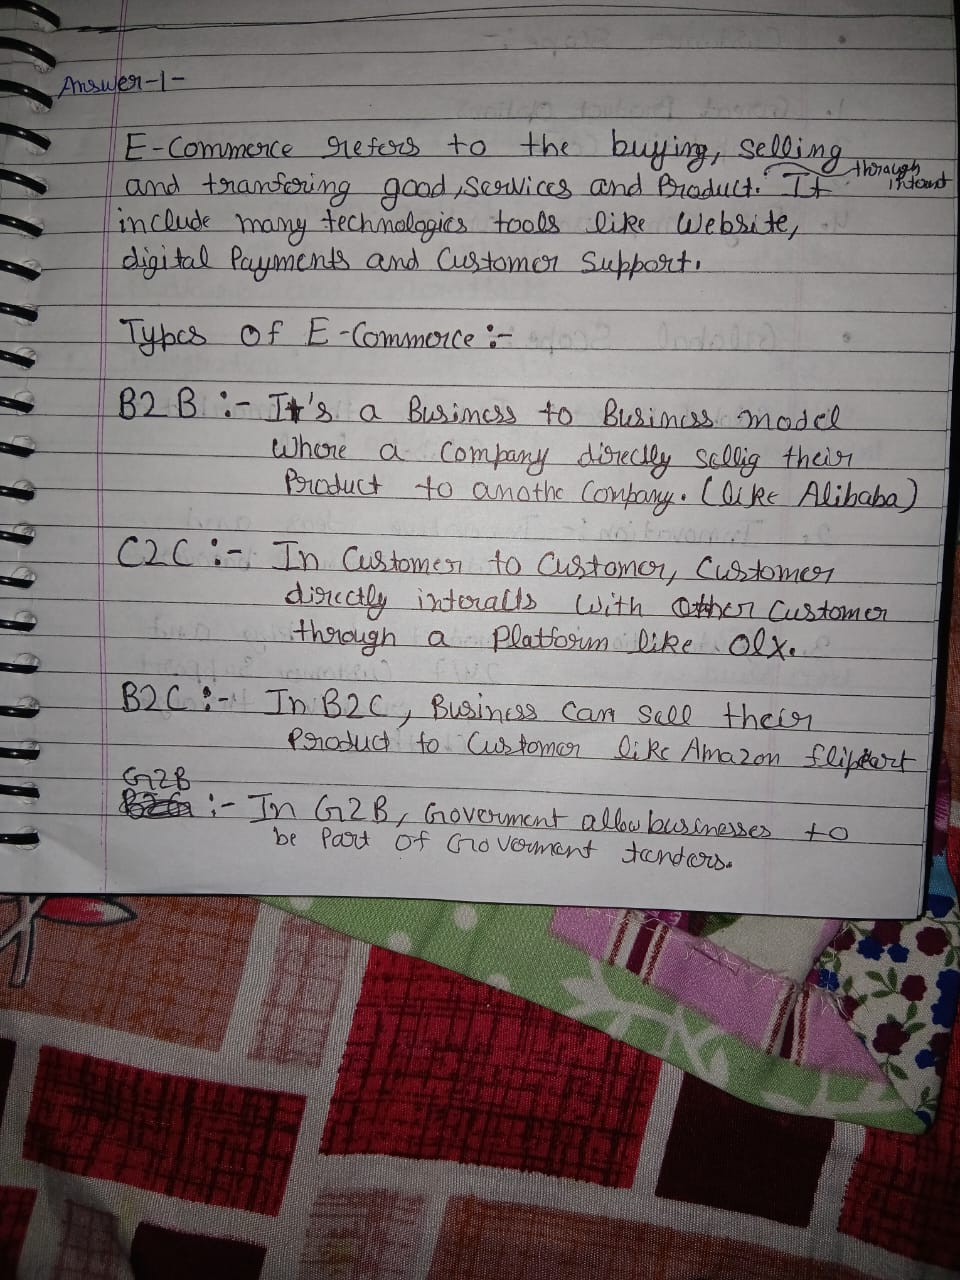 Answer-1-
E-Commerce refers to the buying, selling
and tranfering good, services and Product. It through
include many technologies tools like Website,
digital Payments and Customer Support.
Types of E-Commerce :-
B2B :- It's a Business to Business model
Where a Company directly sellig their
Product to anothe Company. (like Alibaba)
C2C :- In Customer to Customer, Customer
directly interacts with Other Customer
through a Platform like Olx.
B2C :- In B2C, Business can sell their
Product to Customer like Amazon flipkart
G2B
:- In G2B, Goverment allow businesses to
be Part of Goverment tenders.